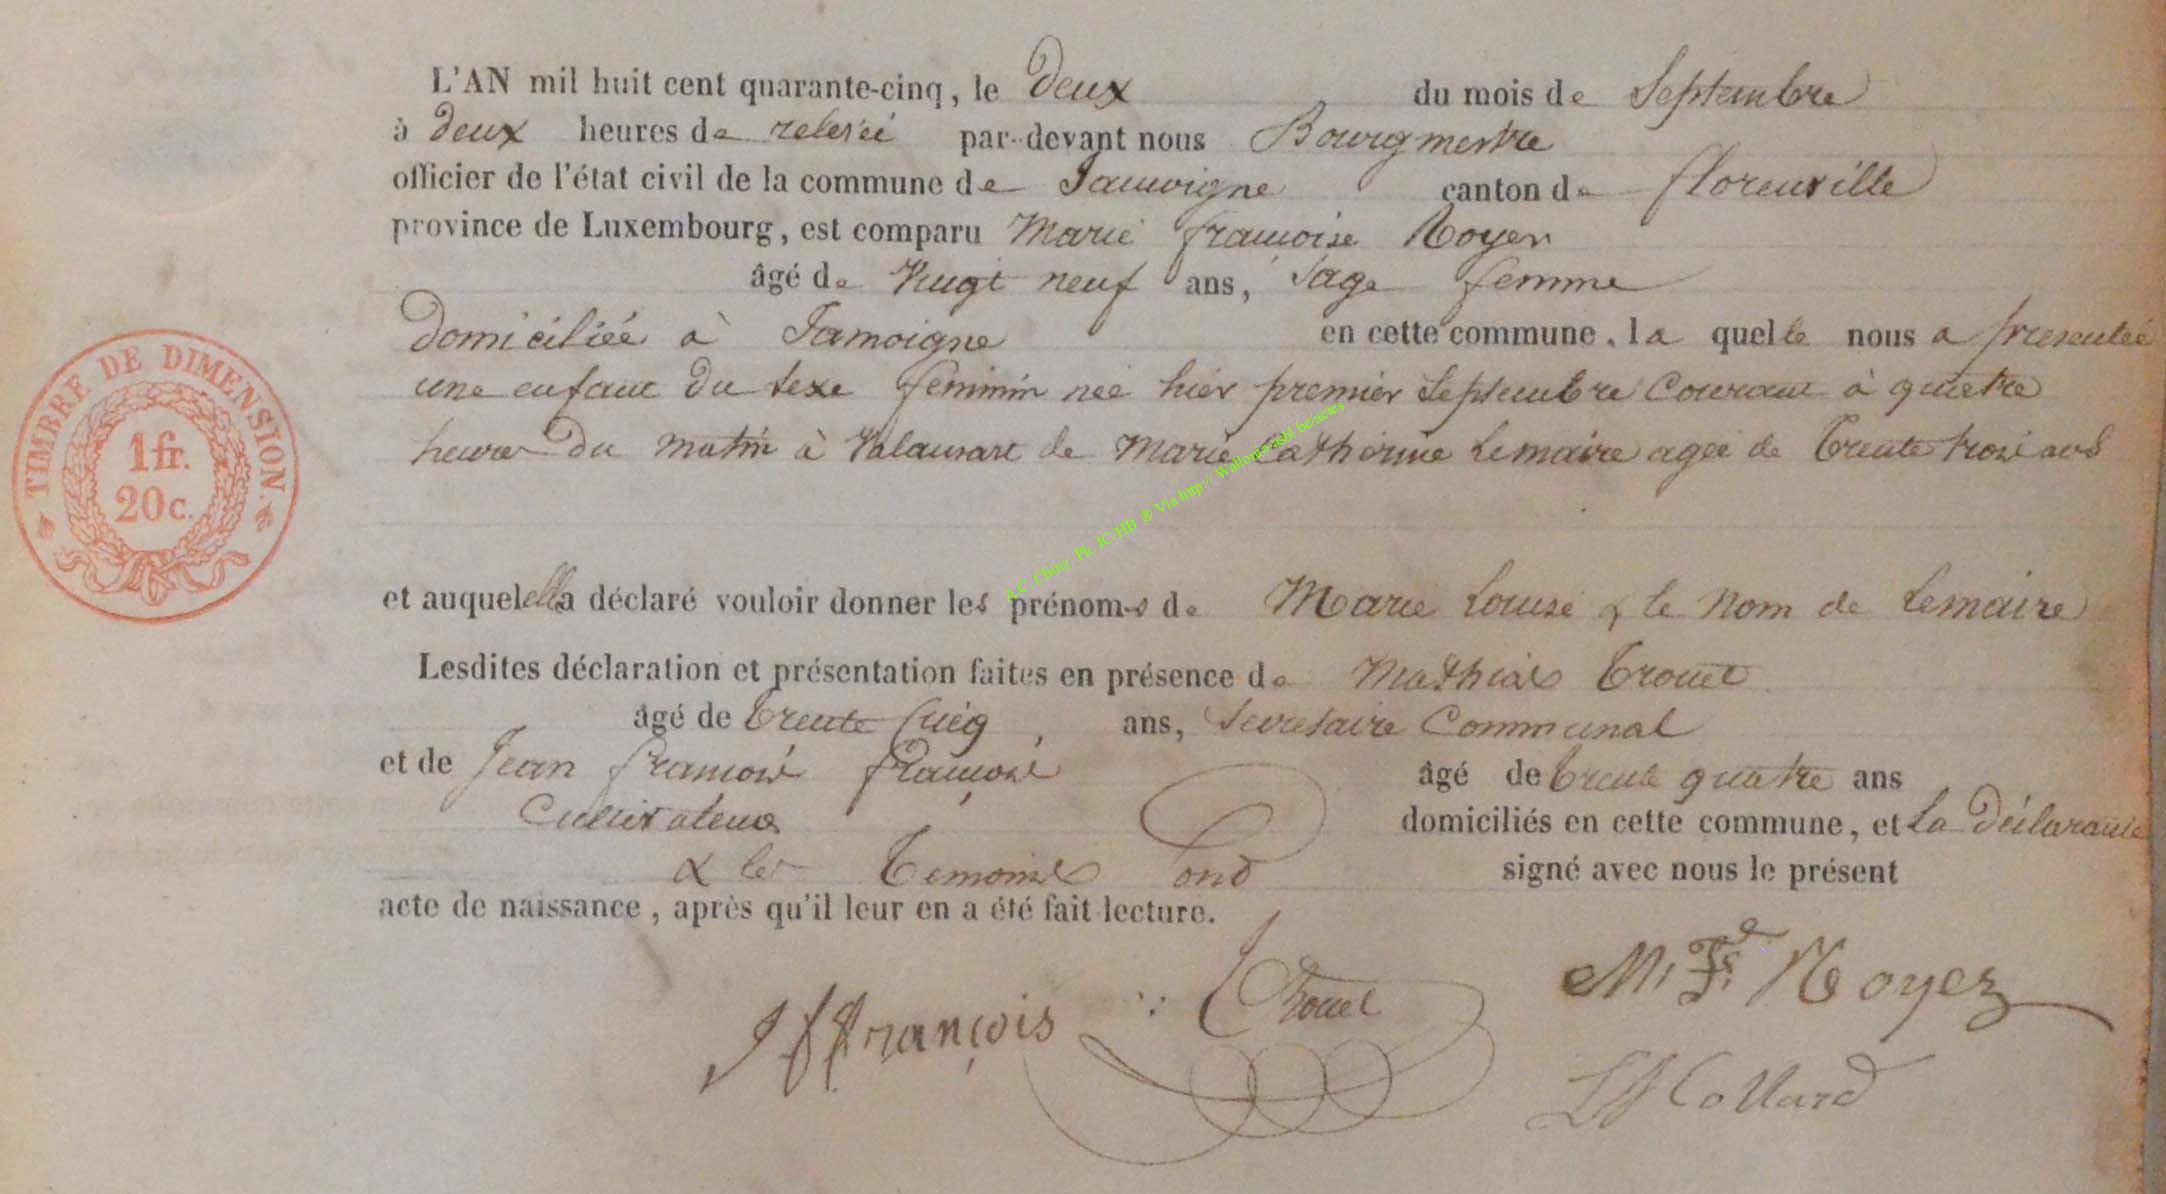 L'AN mil huit cent quarante-cinq, le Deux du mois de Septembre
à deux heures de relevée par-devant nous Bourgmestre
officier de l'état civil de la commune de Jamoigne canton de florenville
province de Luxembourg, est comparu Marie françoise Noyer
âgé de Vingt neuf ans, Sage femme
Domiciliée à Jamoigne en cette commune, la quelle nous a presentée
une enfant du sexe feminin née hier premier Septembre Courant à quatre
heures du matin à Valansart de Marie Catherine Lemaire agée de trente trois ans
et auquel elle a déclaré vouloir donner les prénoms de Marie Louise & le Nom de Lemaire
Lesdites déclaration et présentation faites en présence de Mathias Trouet
âgé de trente Cinq, ans, Secretaire Communal
et de Jean françois françois âgé de trente quatre ans
Cultivateur domiciliés en cette commune, et La Déclarante
& les Temoins ont signé avec nous le présent
acte de naissance, après qu'il leur en a été fait lecture.
TIMBRE DE DIMENSION.
1 fr.
20 c.
A.C. Chiny Ph. JC-HB ® Via http://Wallonia-asbl.be/actes
J f françois Trouet M. Fse Noyer
Collard